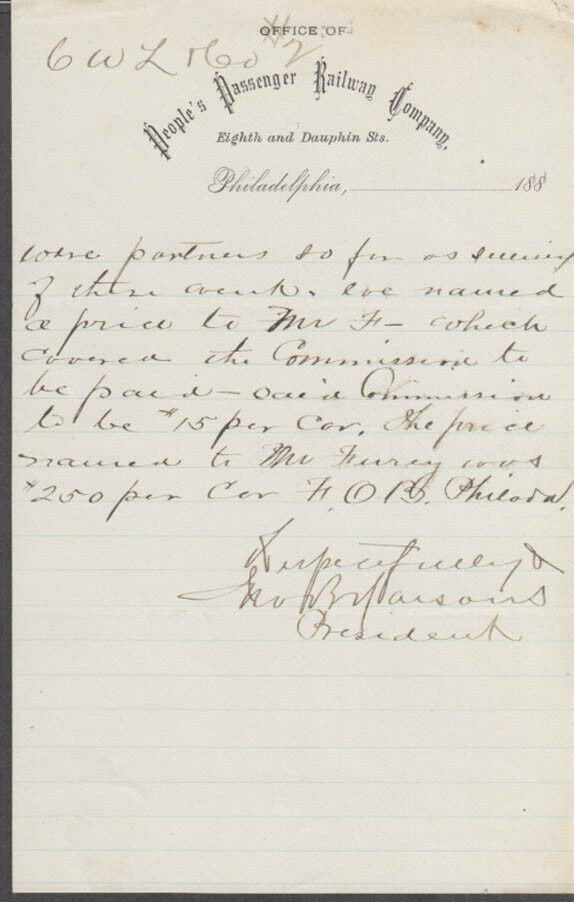 OFFICE OF
C W L & Co #2
People's Passenger Railway Company,
Eighth and Dauphin Sts.
Philadelphia, 188
were partners so far as
of there work. we named
a price to Mr F— which
covered the Commission to
be paid — said Commission
to be $15 per Car. The price
named to Mr Furey was
$250 per Car F.O.B. Philada.
Respectfully
Jno B Parsons
President